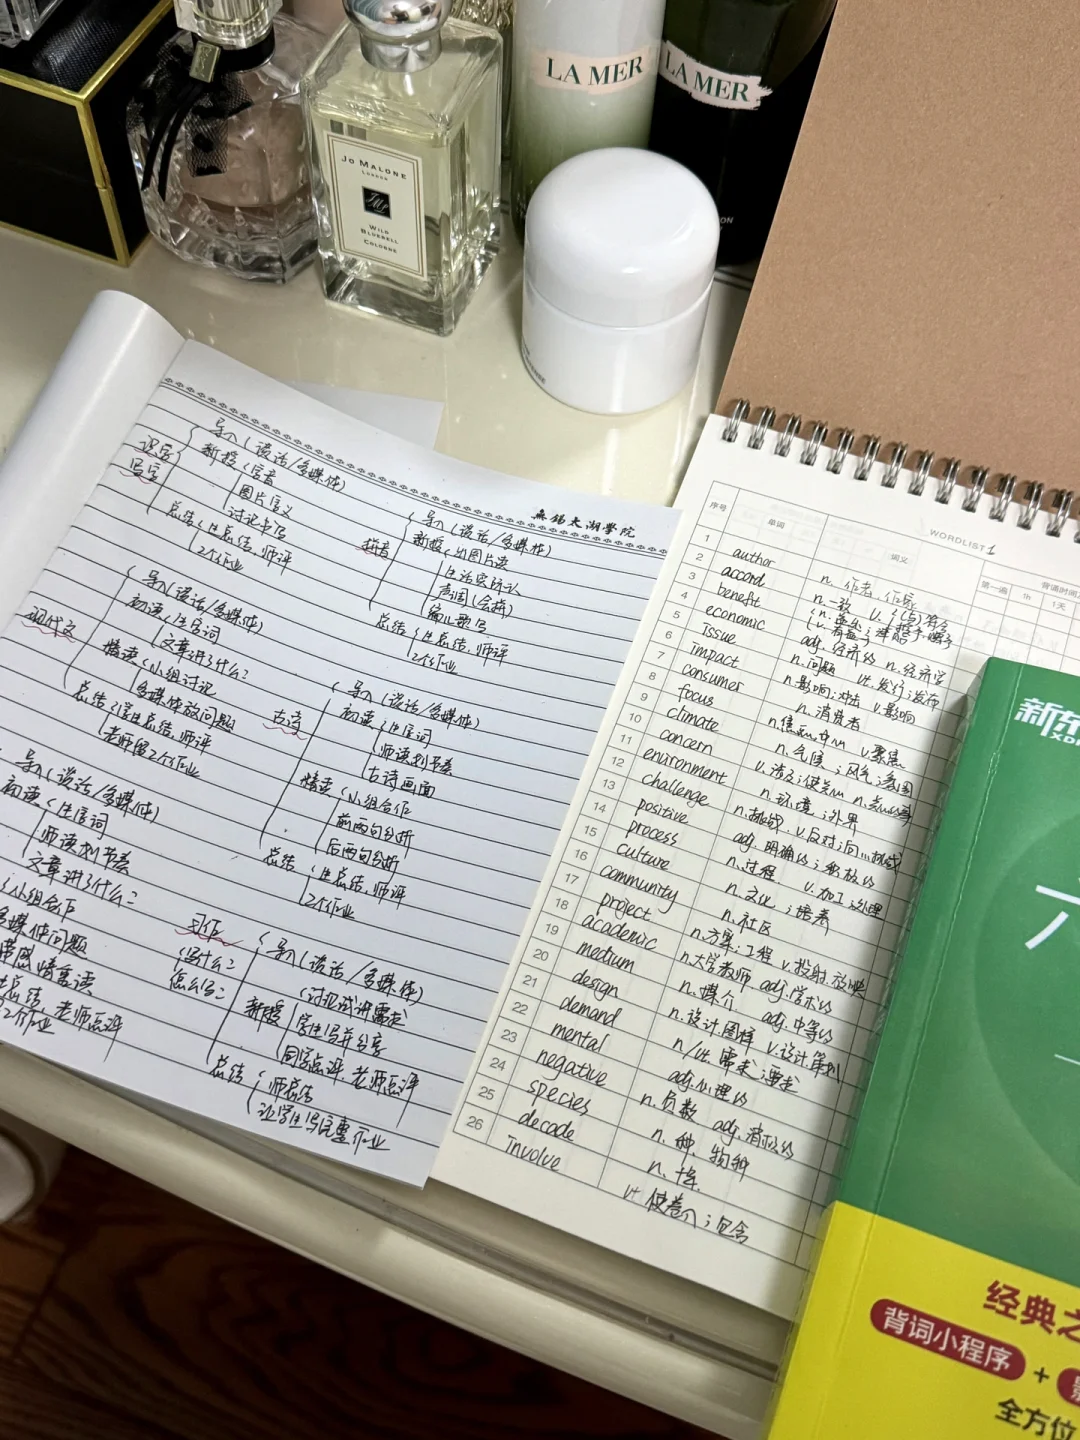 LA MER
LA MER
JO MALONE
LONDON
WILD
BLUEBELL
COLOGNE
無錫太湖學院
识字
写字
导入(谈话/多媒体)
新授
字音
图片字义
讨论书写
总结
生总结,师评
2个作业
拼音
导入(谈话/多媒体)
新授
生活实际认
编儿歌写
总结
生总结,师评
2个作业
现代文
导入(谈话/多媒体)
初读
生字词
文章讲了什么?
精读
小组讨论
多媒体放问题
总结
学生总结,师评
老师留2个作业
古诗
导入(谈话/多媒体)
初读
生字词
师读划节奏
古诗画面
精读
小组合作
前两句分析
后两句分析
总结
生总结,师评
2个作业
导入(谈话/多媒体)
初读
生字词
师读划节奏
文章讲了什么?
小组合作
多媒体问题
带感情宫读
生总结,老师点评
2个作业
习作
写什么?
怎么写?
导入(谈话/多媒体)
新授
学生写并分享
同学点评,老师点评
总结
师总结
让学生写完整作业
WORDLIST 1
序号 单词 词义 背诵时间
第一遍 1h 1天
1 author n. 作者,作家
2 accord n. 一致 v. 符合
3 benefit n. 益处
4 economic adj. 经济的 n. 经济学
5 issue n. 问题 vt. 发行;发布
6 impact n. 影响;冲击 v. 影响
7 consumer n. 消费者
8 focus n. 焦点;中心 v. 聚焦
9 climate n. 气候;风气;氛围
10 concern v. 涉及;使关心
11 environment n. 环境;外界
12 challenge n. 挑战 v. 反对;向…挑战
13 positive adj. 明确的;积极的
14 process n. 过程 v. 加工;处理
15 culture n. 文化;培养
16 community n. 社区
17 project n. 方案;工程 v. 投射,放映
18 academic n. 大学教师 adj. 学术的
19 medium n. 媒介 adj. 中等的
20 design n. 设计,图样 v. 设计,策划
21 demand n./vt. 需求;要求
22 mental adj. 心理的
23 negative n. 负数 adj. 消极的
24 species n. 种,物种
25 decade n. 十年
26 involve vt. 使卷入;包含
新东
XD
六
经典之
背词小程序
+
全方位